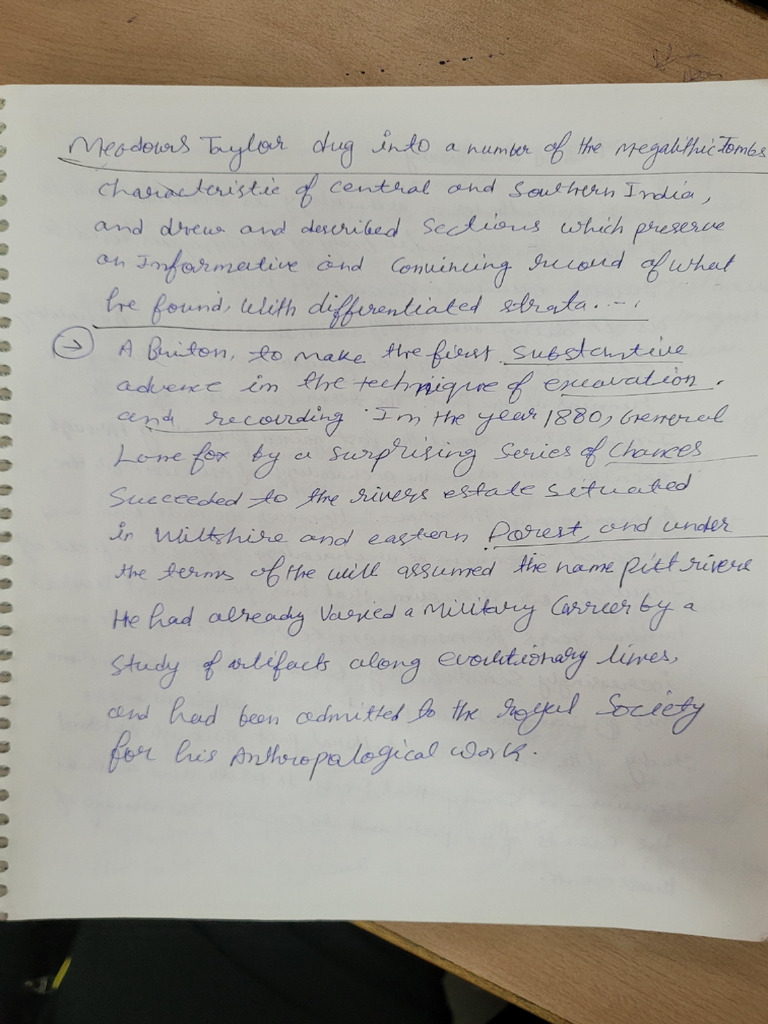 Meadows Taylor dug into a number of the Megalithic Tombs
characteristic of central and Southern India,
and drew and described Sections which preserve
an Informative and Convincing record of what
he found, with differentiated strata....
→ A Briton, to make the first substantive
advance in the technique of excavation.
and recording. In the year 1880, General
Lane fox by a surprising Series of Chances
Succeeded to the rivers estate situated
in Wiltshire and eastern Dorest, and under
the terms of the will assumed the name pitt rivers
He had already Varied a Military Carrier by a
Study of artifacts along evolutionary lines,
and had been admitted to the royal Society
for his Anthropalogical work.